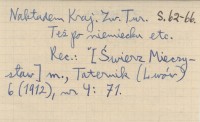 Nakładem Kraj. Zw. Tur. S. 62-66.
Też po niemiecku etc.
Rec.: "[Świerz Mieczy-
sław] m., Taternik (Lwów)
6 (1912), nr 4: 71.